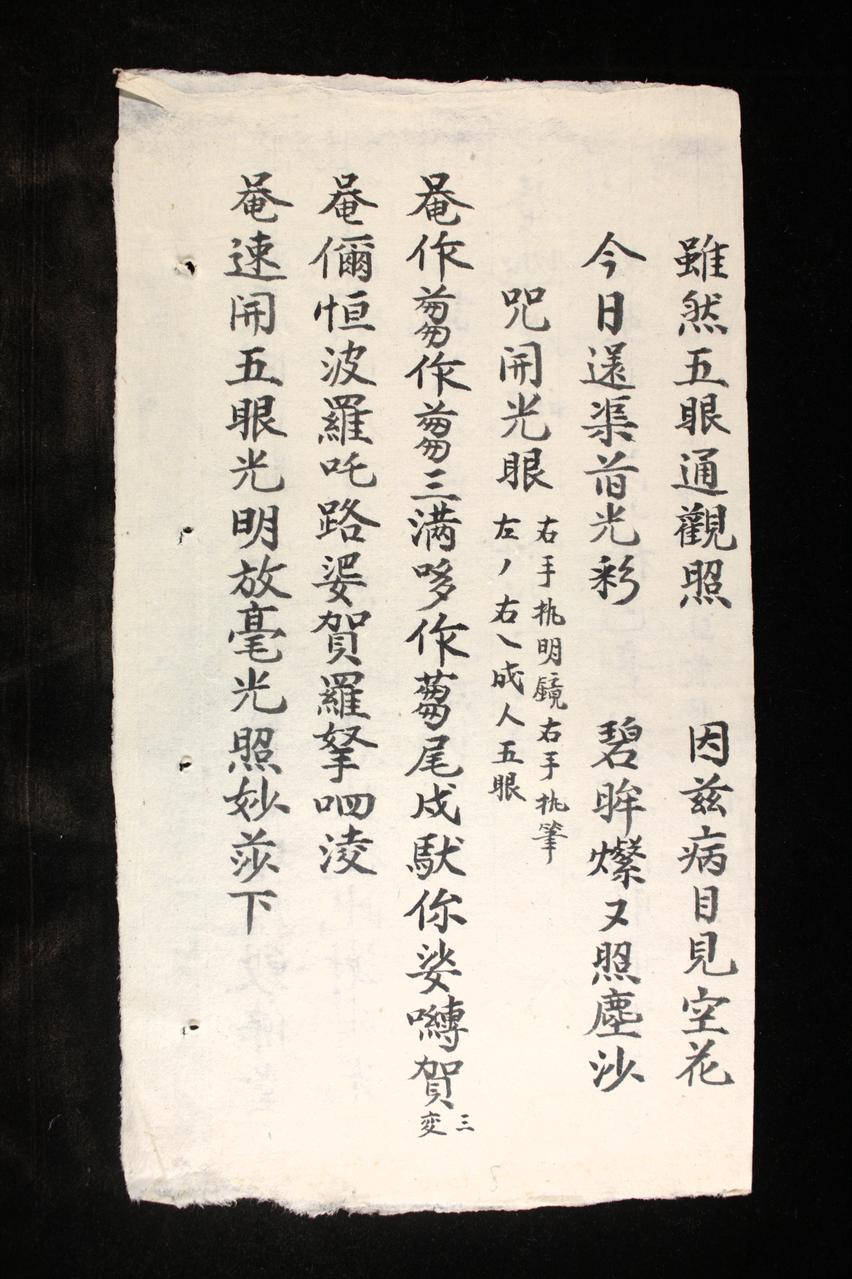 雖然五眼通觀照　因茲病目見空花
今日還渠舊光彩　碧眸燦又照塵沙
呪開光眼
右手执明鏡右手执筆
左丿右乀成人五眼
唵作蒭作蒭三满哆作蒭尾戍馱你娑嚩賀
三变
唵儞恒波羅吒路婆賀羅拏呬淩
唵速開五眼光明放毫光照妙莎下